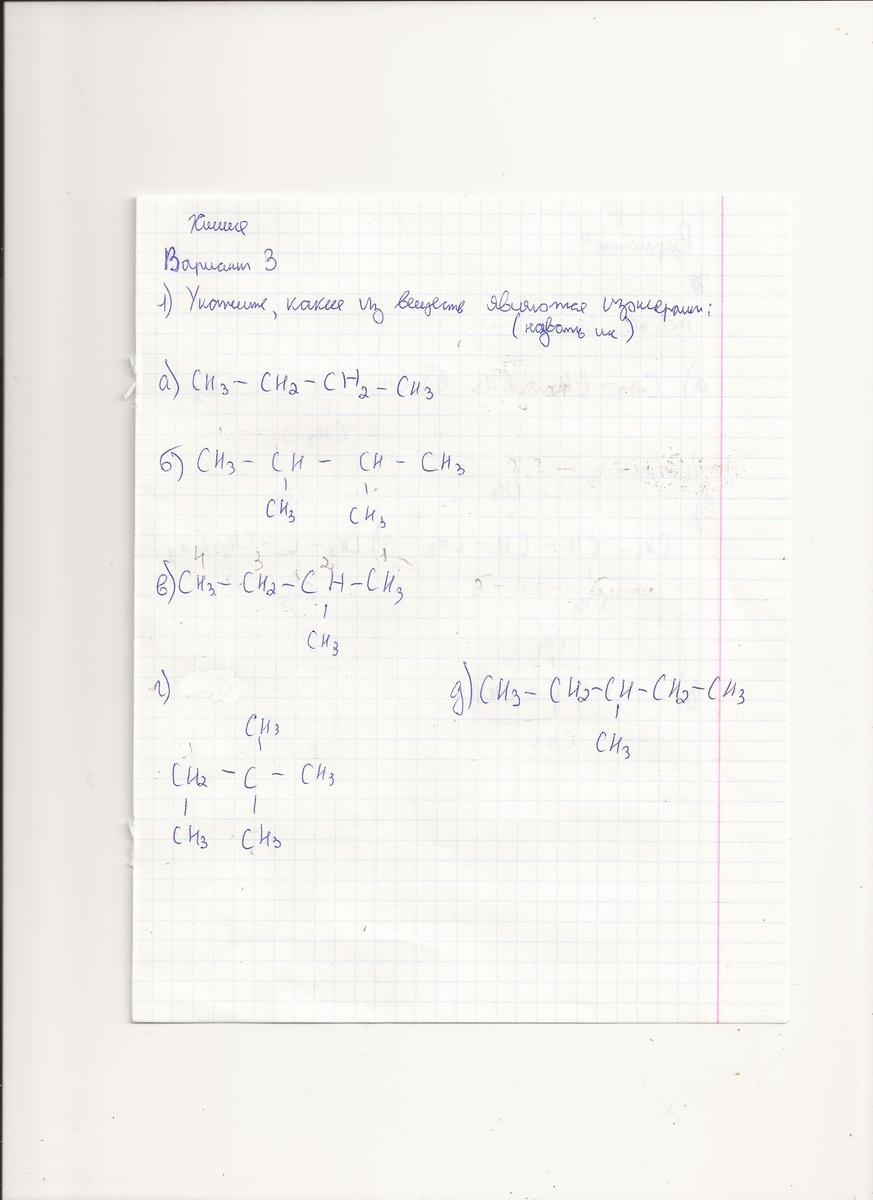 Химия
Вариант 3
1) Укажите, какие из веществ являются изомерами:
(назвать их)
а) CH3 – CH2 – CH2 – CH3
б) CH3 – CH – CH – CH3
CH3 CH3
4 3 2 1
в) CH3 – CH2 – CH – CH3
CH3
г)
д) CH3 – CH2 – CH – CH2 – CH3
CH3
CH3
CH2 – C – CH3
CH3 CH3